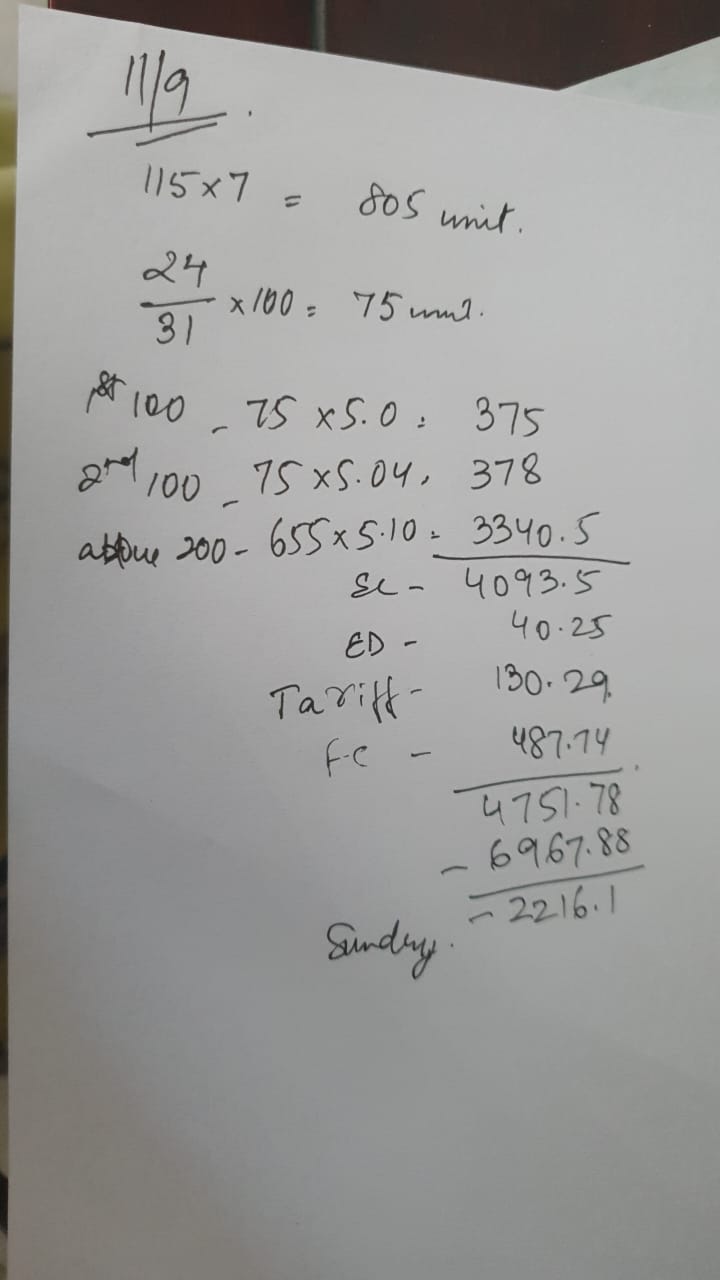 11/9.
115x7 = 805 unit.
24
31
x 100 = 75 unit.
1st 100 - 75 x5.0 = 375
2nd 100 - 75 x5.04, 378
above 200 - 655x5.10 = 3340.5
SC - 4093.5
ED - 40.25
Tariff - 130.29
F.C - 487.74
4751.78
- 6967.88
- 2216.1
Sundry.